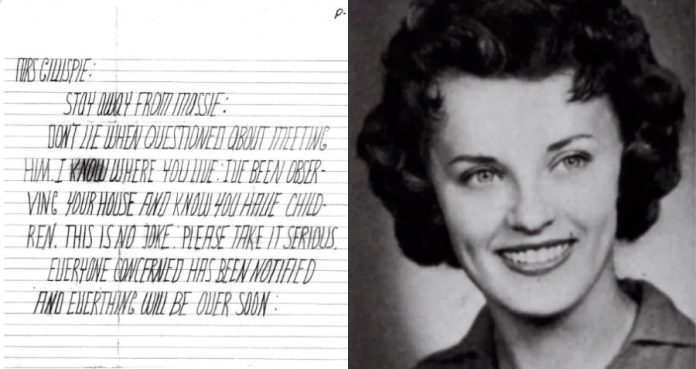 P-
MRS GILLISPIE:
STAY AWAY FROM MASSIE:
DON'T LIE WHEN QUESTIONED ABOUT MEETING
HIM. I KNOW WHERE YOU LIVE: I'VE BEEN OBSER-
VING YOUR HOUSE AND KNOW YOU HAVE CHILD-
REN. THIS IS NO JOKE: PLEASE TAKE IT SERIOUS.
EVERYONE CONCERNED HAS BEEN NOTIFIED
AND EVERTHING WILL BE OVER SOON: